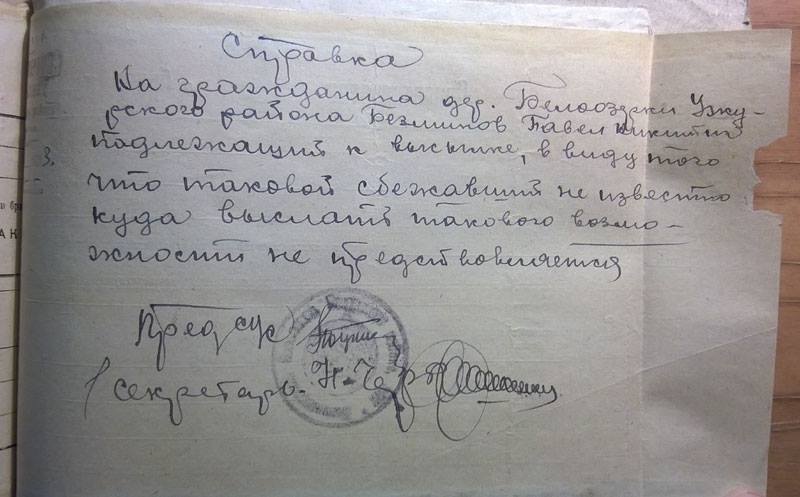 Справка
На гражданина дер. Белоозерки Ужу-
рского района Безминов Павел Никитич
подлежащий к высылке, в виду того
3.
что таковой сбежавший не известно
куда выслать такового возмо-
жности не представляется
Пред с/с
Секретарь. Н. Чер